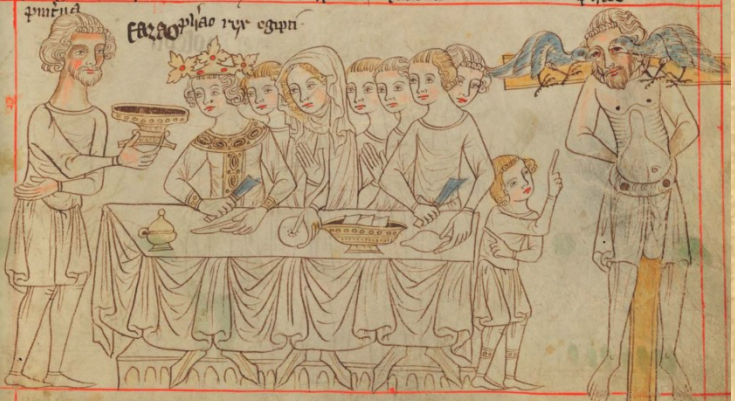 pinc̄na
FARAO ph̄ao rex egipti